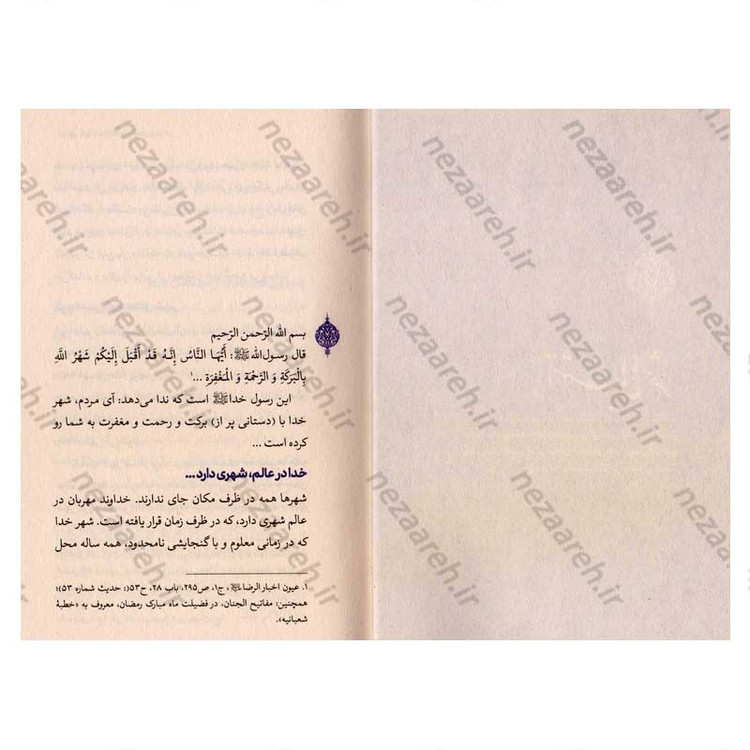 بسم الله الرّحمن الرّحیم
قال رسول‌الله ﷺ: أَیُّهَا النَّاسُ إِنَّهُ قَدْ أَقْبَلَ إِلَیْکُمْ شَهْرُ اللَّهِ
بِالْبَرَکَةِ وَ الرَّحْمَةِ وَ الْمَغْفِرَةِ ...۱
این رسول خدا ﷺ است که ندا می‌دهد: آی مردم، شهر
خدا با (دستانی پر از) برکت و رحمت و مغفرت به شما رو
کرده است ...
خدا در عالم، شهری دارد ...
شهرها همه در ظرف مکان جای ندارند. خداوند مهربان در
عالم شهری دارد، که در ظرف زمان قرار یافته است. شهر خدا
که در زمانی معلوم و با گنجایشی نامحدود، همه ساله محل
۱. عیون اخبار الرضا، ج۱، ص۲۹۵، باب ۲۸، ح۵۳(: حدیث شماره ۵۳)؛
همچنین: مفاتیح الجنان، در فضیلت ماه مبارک رمضان، معروف به «خطبهٔ
شعبانیه».
nezaareh.ir